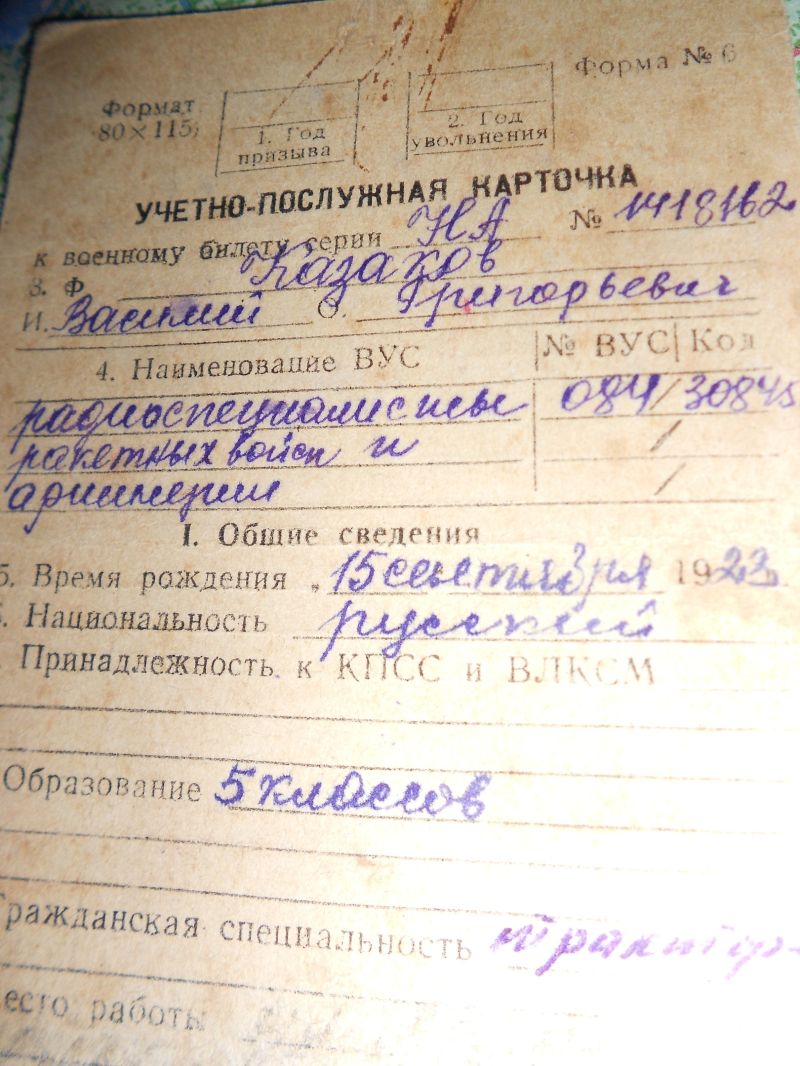 Форма № 6
Формат
80×115
1. Год
призыва
2. Год
увольнения
УЧЕТНО-ПОСЛУЖНАЯ КАРТОЧКА
к военному билету серии НА № 1418162
3. Ф Казаков
И. Василий О. Григорьевич
4. Наименование ВУС № ВУС Код
радиоспециалисты 084/30845
ракетных войск и /
артиллерии /
I. Общие сведения
5. Время рождения „ 15 сентября 1923
Национальность русский
Принадлежность к КПСС и ВЛКСМ
Образование 5 классов
Гражданская специальность трактор-
есто работы